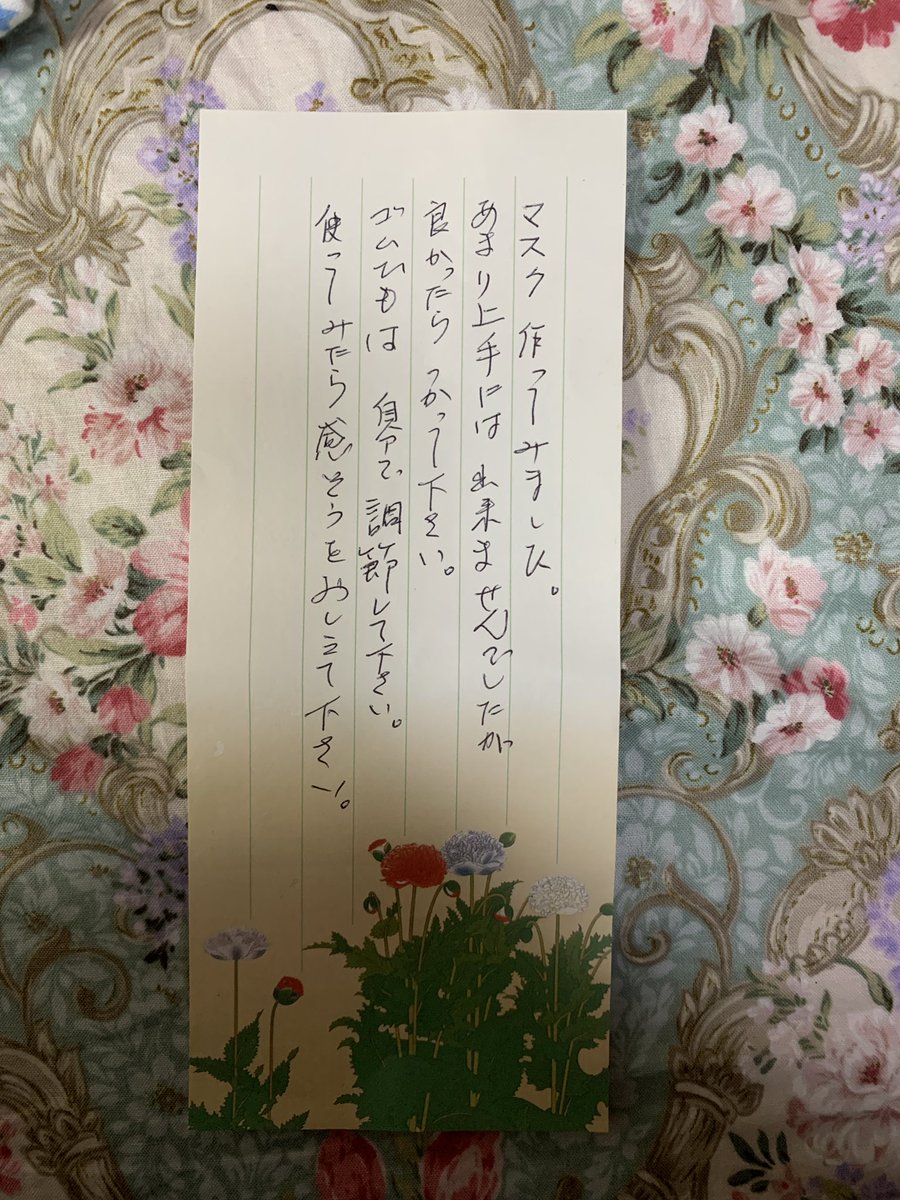 マスク 作ってみました。
あまり上手には 出来ませんでしたが
良かったら つかって下さい。
ゴムひもは 自分で 調節して下さい。
使ってみたら感そうをおしえて下さい。